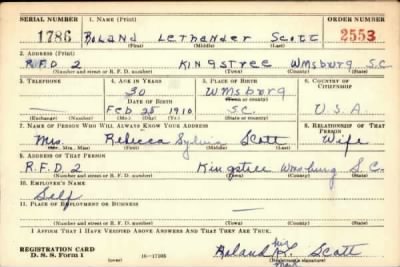 SERIAL NUMBER 1. NAME (Print) ORDER NUMBER
1786 Roland Lethander Scott 2553
(First) (Middle) (Last)
2. ADDRESS (Print)
R.F.D 2 Kingstree Wmsburg S.C.
(Number and street or R. F. D. number) (Town) (County) (State)
3. TELEPHONE 4. AGE IN YEARS 5. PLACE OF BIRTH 6. COUNTRY OF CITIZENSHIP
30 Wmsburg
DATE OF BIRTH (Town or county)
— Feb 25 1910 S.C. U.S.A.
(Exchange) (Number) (Mo.) (Day) (Yr.) (State or country)
7. NAME OF PERSON WHO WILL ALWAYS KNOW YOUR ADDRESS 8. RELATIONSHIP OF THAT PERSON
Mrs. Rebecca Sylvia Scott Wife
(Mr., Mrs., Miss) (First) (Middle) (Last)
9. ADDRESS OF THAT PERSON
R.F.D 2 Kingstree Wmsburg S.C.
(Number and street or R. F. D. number) (Town) (County) (State)
10. EMPLOYER'S NAME
Self
11. PLACE OF EMPLOYMENT OR BUSINESS
—
(Number and street or R. F. D. number) (Town) (County) (State)
I AFFIRM THAT I HAVE VERIFIED ABOVE ANSWERS AND THAT THEY ARE TRUE.
REGISTRATION CARD his
D. S. S. Form 1 (over) 16—17105 Roland L. Scott
(Registrant's signature)
Mark